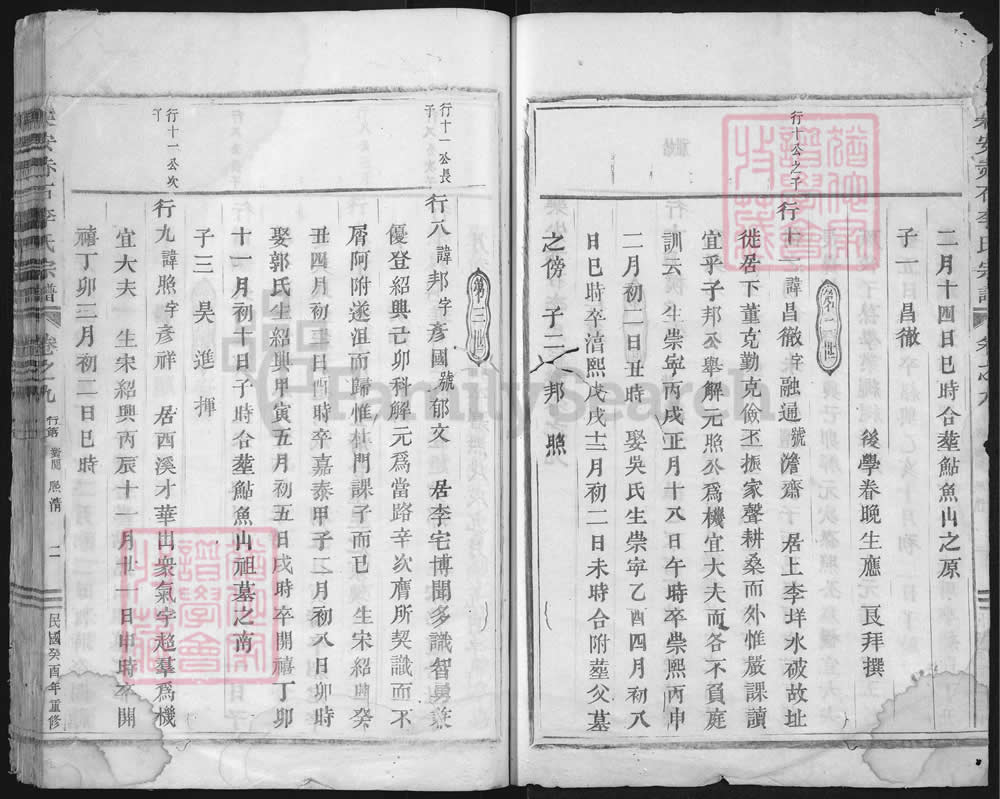 二月十四日巳時合塟鮎魚山之原
子一 昌徹
後學眷晚生應 艮拜撰
第二世
行十公之子
行十二諱昌徹字融通號澹齋 居上李垟水破故址
徙居下董克勤克儉丕振家聲耕桑而外惟嚴課讀
宜乎子邦公舉解元照公爲機宜大夫而各不負庭
訓云 生崇寧丙戌正月十八日午時卒崇熙丙申
二月初二日丑時 娶吳氏生崇寧乙酉四月初八
日巳時卒淯熙戊戌十二月初二日未時合附塟父墓
之傍 子二 邦 照
第三世
行十一公長子
行八諱邦字彥國號郁文 居李宅博聞多識智
優登紹興己卯科解元爲當路辛次膺所契識而不
屑阿附遂沮而歸惟杜門課子而已 生宋紹興癸
丑四月初三日酉時卒嘉泰甲子二月初八日卯時
娶郭氏生紹興甲寅五月初五日戌時卒開禧丁卯
十一月初十日子時合塟鮎魚山祖墓之南
子三 昊 進 揮
行十一公次子
行九諱照字彥祥 居西溪才華出衆氣宇超羣爲機
宜大夫 生宋紹興丙辰十一月廿一日申時卒開
禧丁卯二月初二日巳時
李氏宗譜 卷之九 行第 熈淸 二 民國癸酉年重修
FamilySearch